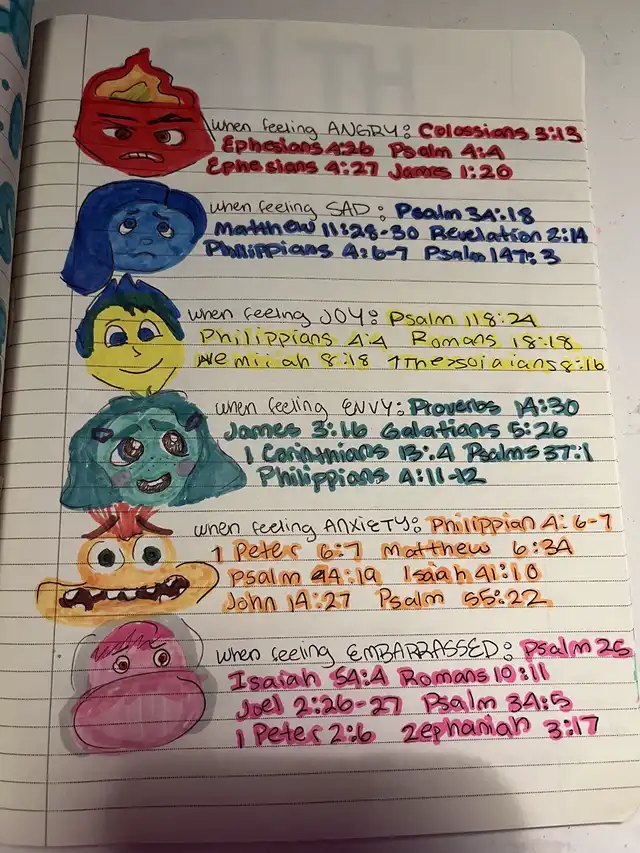 when feeling ANGRY: Colossians 3:13
Ephesians 4:26 Psalm 4:4
Ephesians 4:27 James 1:20
when feeling SAD: Psalm 34:18
Matthew 11:28-30 Revelation 2:14
Philippians 4:6-7 Psalm 147:3
when feeling JOY: Psalm 118:24
Philippians 4:4 Romans 18:18
Nemiriah 8:18 1 Thessolaians 8:16
when feeling ENVY: Proverbs 14:30
James 3:16 Galatians 5:26
1 Corinthians 13:4 Psalms 37:1
Philippians 4:11-12
when feeling ANXIETY: Philippian 4:6-7
1 Peter 6:7 Matthew 6:34
Psalm 94:19 Isaiah 41:10
John 14:27 Psalm 55:22
when feeling EMBARRASSED: Psalm 25
Isaiah 54:4 Romans 10:11
Joel 2:26-27 Psalm 34:5
1 Peter 2:6 Zephaniah 3:17